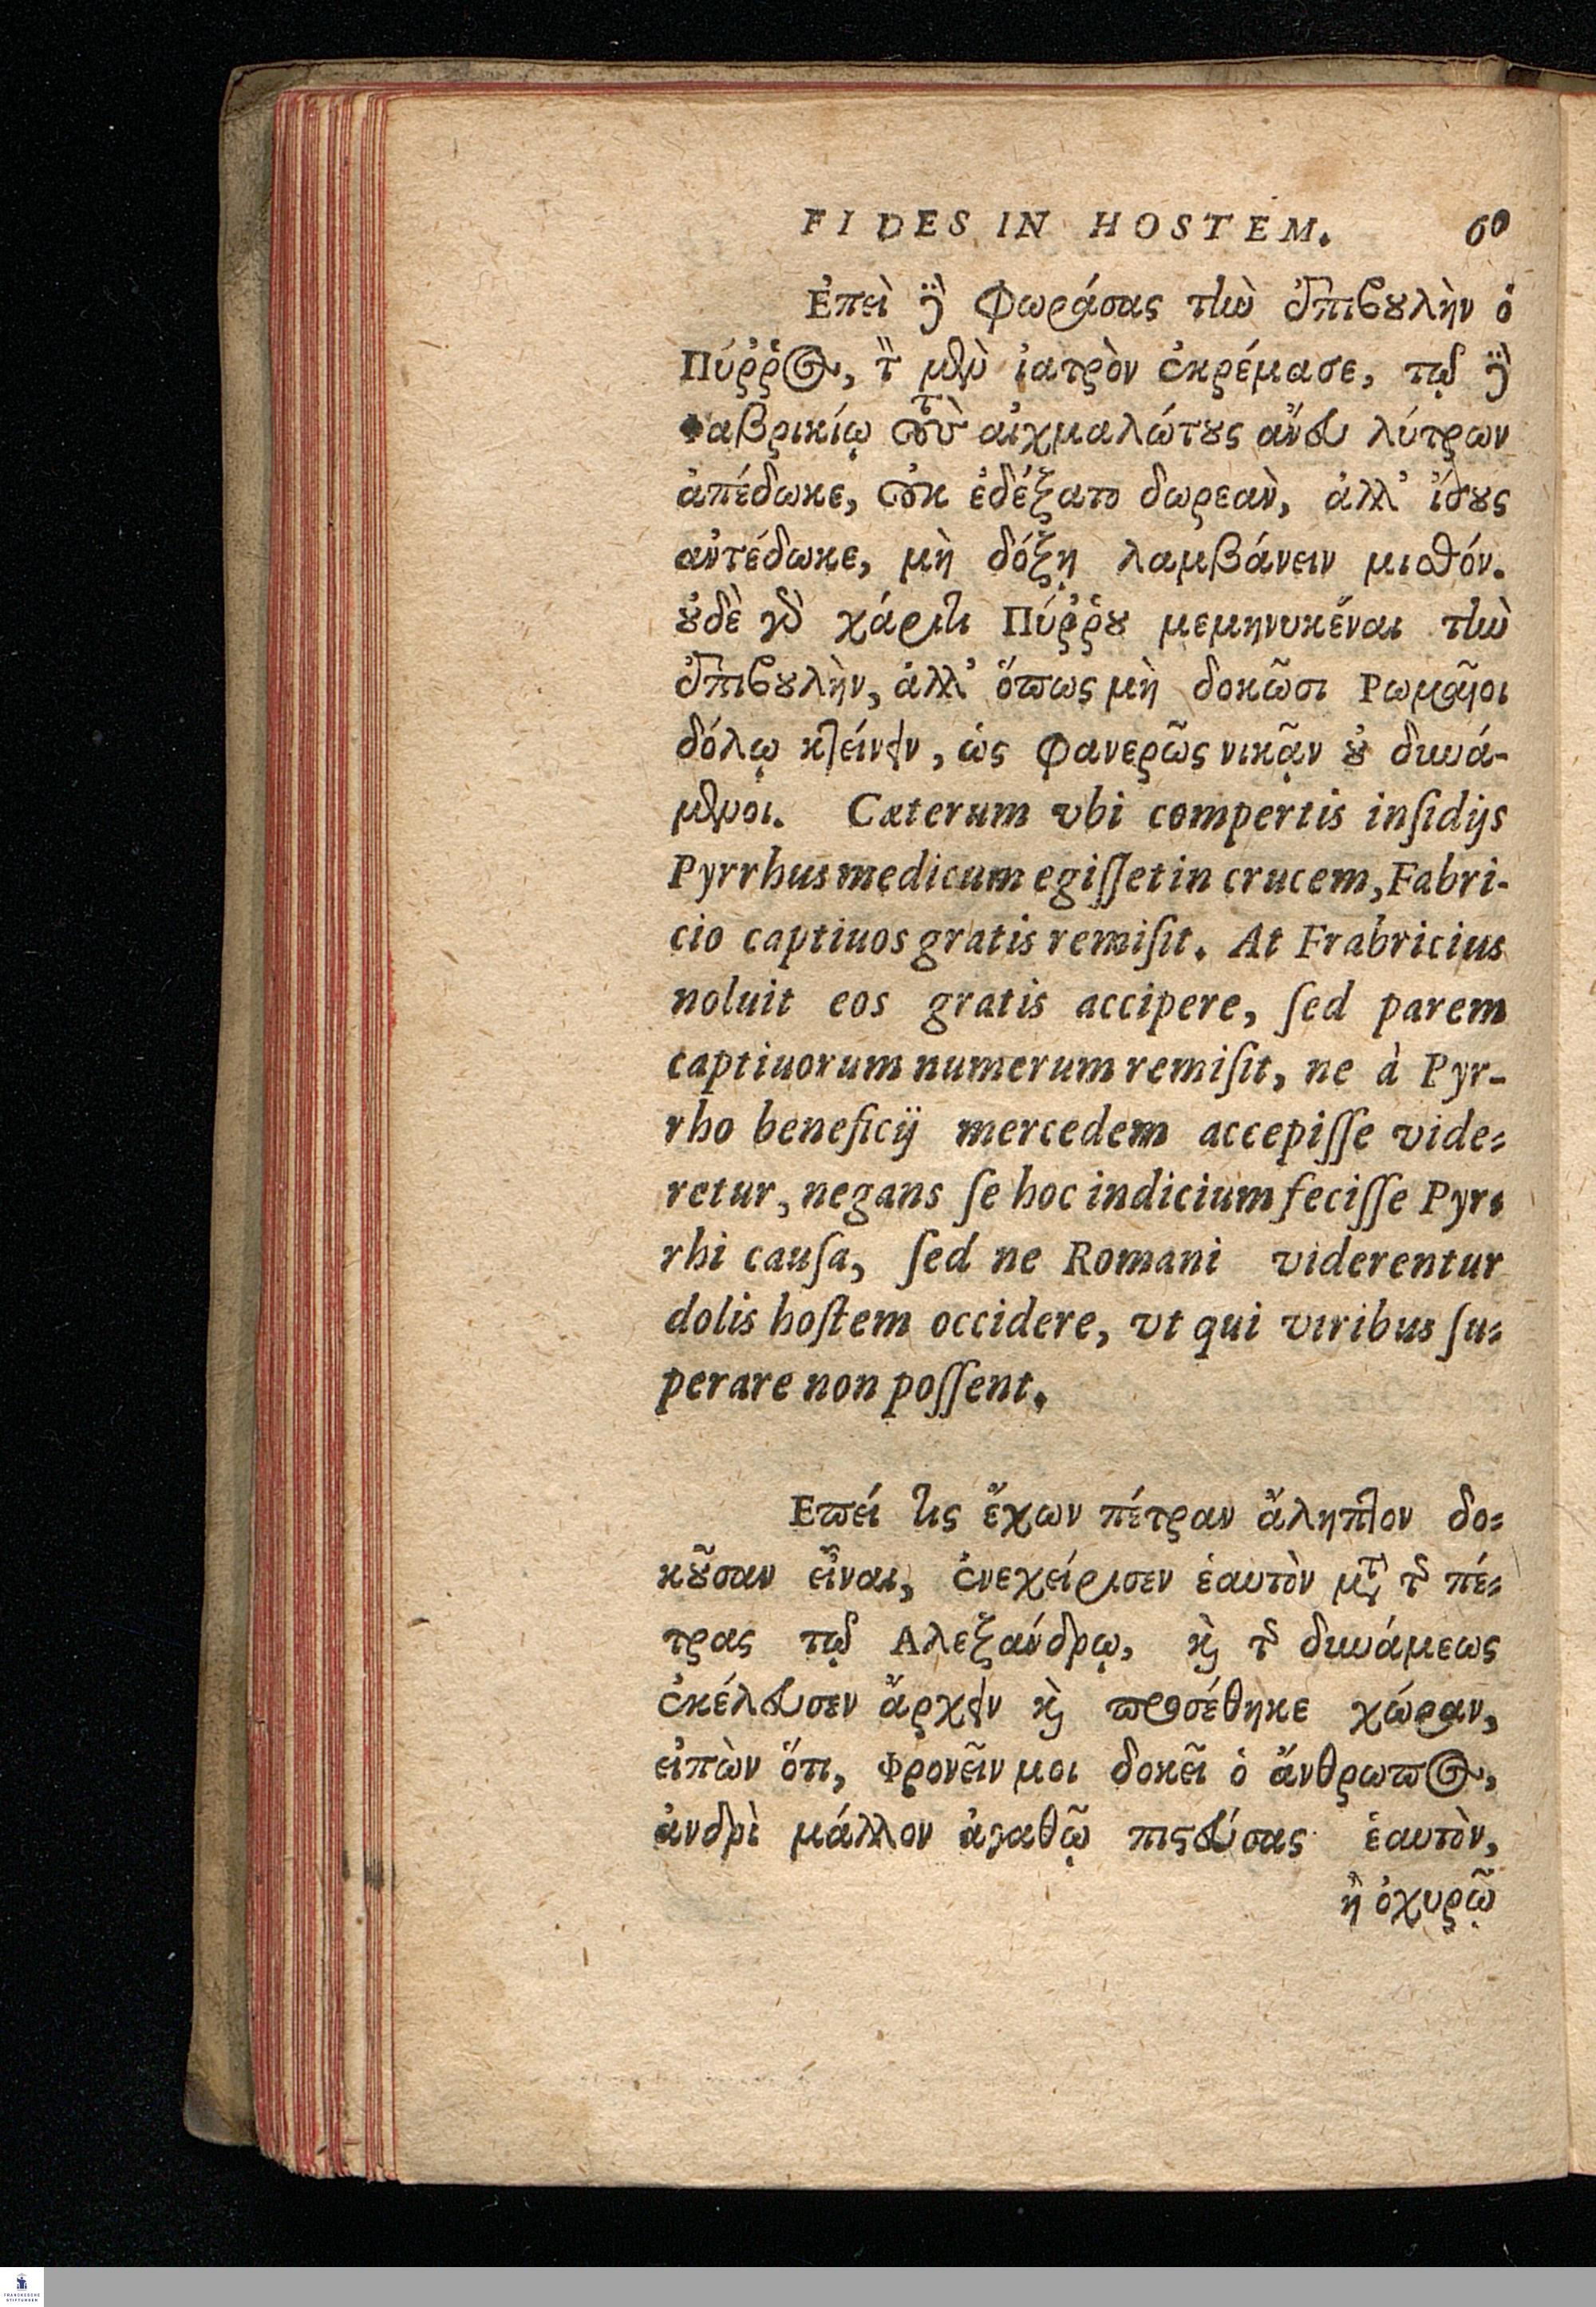 FIDES IN HOSTEM. 60
Ἐπεὶ δὲ φωράσας τὴν ἐπιβουλὴν ὁ
Πύῤῥος, τὸν μὲν ἰατρὸν ἐκρέμασε, τῷ δὲ
Φαβρικίῳ τοὺς αἰχμαλώτους ἄνευ λύτρων
ἀπέδωκε, οὐκ ἐδέξατο δωρεὰν, ἀλλ' ἴσους
ἀντέδωκε, μὴ δόξῃ λαμβάνειν μισθόν.
οὐδὲ γὰρ χάριτι Πύῤῥου μεμηνυκέναι τὴν
ἐπιβουλὴν, ἀλλ' ὅπως μὴ δοκῶσι Ρωμαῖοι
δόλῳ κτείνειν, ὡς φανερῶς νικᾷν οὐ δυνά-
μενοι. Cæterum vbi compertis inſidijs
Pyrrhus medicum egiſſet in crucem, Fabri-
cio captiuos gratis remiſit. At Frabricius
noluit eos gratis accipere, ſed parem
captiuorum numerum remiſit, ne à Pyr-
rho beneficij mercedem accepiſſe vide-
retur, negans ſe hoc indicium feciſſe Pyr-
rhi cauſa, ſed ne Romani viderentur
dolis hoſtem occidere, vt qui viribus ſu-
perare non poſſent.
Επεί τις ἔχων πέτραν ἄληπτον δο-
κοῦσαν εἶναι, ἐνεχείρισεν ἑαυτὸν μετὰ τῆς πέ-
τρας τῷ Αλεξάνδρῳ, καὶ τῆς δυνάμεως
ἐκέλευσεν ἄρχειν καὶ προσέθηκε χώραν,
εἰπὼν ὅτι, Φρονεῖν μοι δοκεῖ ὁ ἄνθρωπος,
ἀνδρὶ μάλλον ἀγαθῷ πιστεύσας ἑαυτὸν,
ἢ ὀχυρῷ
FRANCKESCHE
STIFTUNGEN